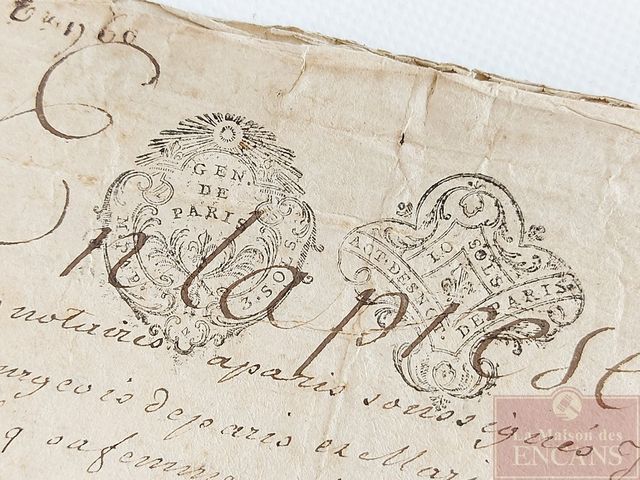 1760
GEN.
DE
PARIS
3.SOLS
10 SOLS
ACT.DES NOT. DE PARIS
En la pres
notaires a paris soussignés
bourgeois de paris et Mar
sa femme
La Maison des
ENCANS